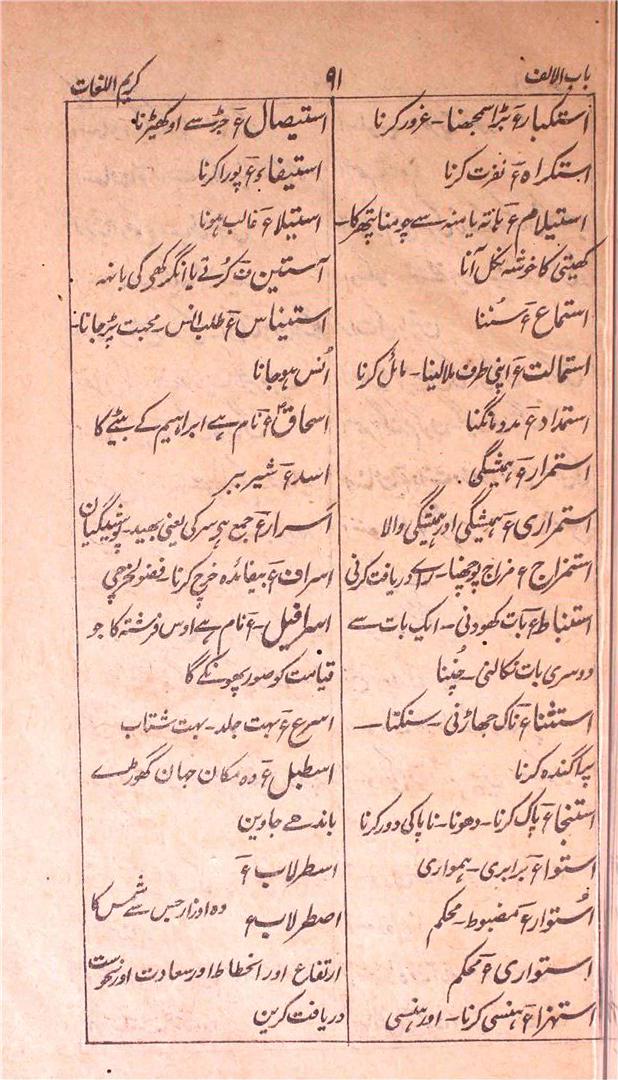 باب الالف
۹۱
کریم اللغات
استکبار ع بڑا سمجھنا۔ غرور کرنا
استکراہ ع نفرت کرنا
استیلام ع ہاتہ یا منہ سے چومنا پتھر کا۔
کھیتی کا خوشہ نکل آنا
استماع ع سننا
استمالت ع اپنی طرف ملا لینا۔ مائل کرنا
استمداد ع مدد مانگنا
استمرار ع ہمیشگی
استمراری ع ہمیشگی اور ہمیشگی والا
استمزاج ع مزاج پوچھنا۔ راے دریافت کرنی
استنباط ع بات کھودنی۔ ایک بات سے
دوسری بات نکالنی۔ چننا
استنثا ع ناک جھاڑنی۔ سنکنا۔
پراگندہ کرنا
استنجا ع پاک کرنا۔ دھونا۔ ناپاکی دور کرنا
استوا ع برابری۔ ہمواری
اُستوار ع مضبوط۔ محکم
استواری ع محکم
استہزا ع ہنسی کرنا۔ اور ہنسی
استیصال ع جڑ سے اوکھیڑنا
استیفاء ع پورا کرنا
استیلا ع غالب ہونا
آستین ف کرُتے یا انگرکھی کی بانہہ
استیناس ع طلب انس۔ محبت پڑ جانا۔
اُنس ہو جانا
اسحاق ع نام ہے ابراہیم کے بیٹے کا
اسد ع شیر ببر
اَسرار ع جمع ہی سر کی یعنی بھید۔ پوشیدگیان
اسراف ع بیفائدہ خرچ کرنا فضولخرچی
اسرافیل۔ ع نام ہے اوس فرشتہ کا جو
قیامت کو صور پھونکے گا
اسرع ع بہت جلد۔ بہت شتاب
اسطبل ع وہ مکان جہان گھوڑے
باندھے جاوین
اسطرلاب ع
اصطرلاب ع وہ اوزار جس سے شمس کا
ارتفاع اور انحطاط اور سعادت اور نحوست
دریافت کرین